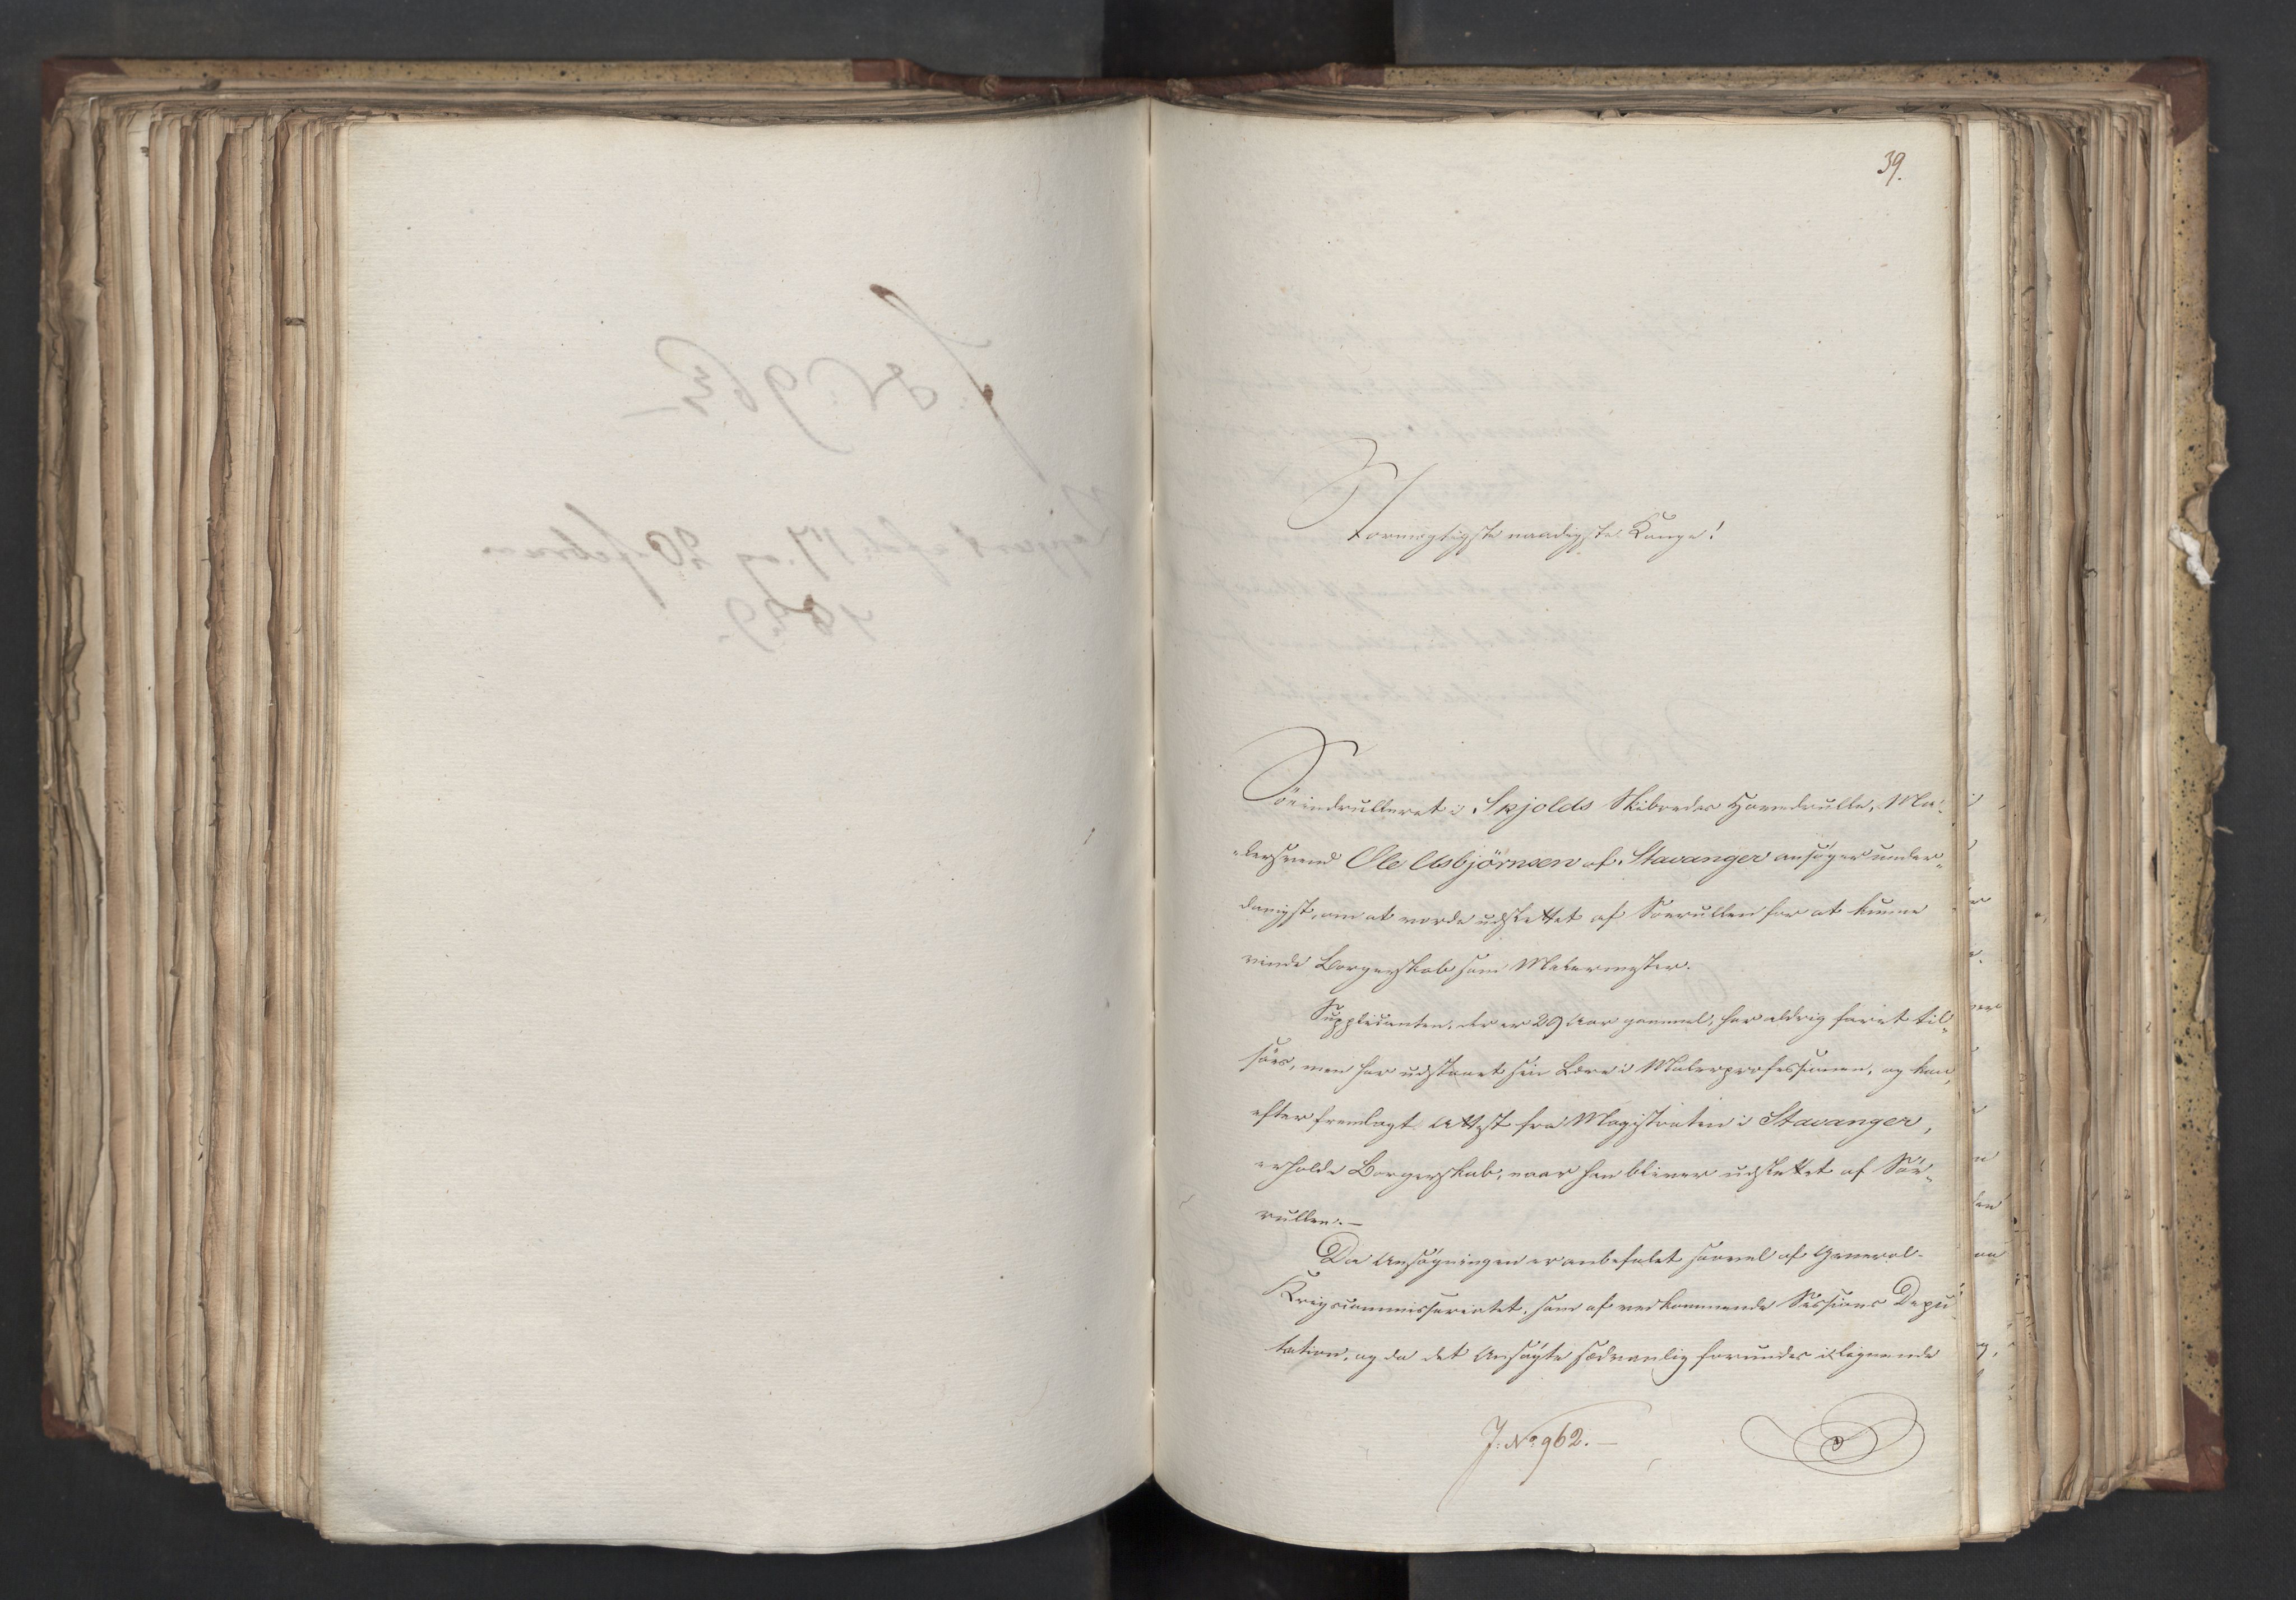 39.
Stormægtigste naadigste Konge!
Söeindrulleret i Skjolds Skibredes Hovedrulle, Ma-
lersvend Ole Asbjörnsen af Stavanger ansöger under-
danigst, om at vorde udslettet af Söerullen for at kunne
vinde Borgerskab som Malermester.
Supplicanten, der er 29 Aar gammel, har aldrig faret til-
söes, men har udstaaet sin Lære i Malerprofessionen, og kan,
efter fremlagt Attest fra Magistraten i Stavanger,
erholde Borgerskab, naar han bliver udslettet af Söe-
rullen. —
Da Ansögningen er anbefalet saavel af General-
Krigscommissariatet, som af vedkommende Sessions Depu-
tation, og da det Ansögte sædvanlig forundes i lignende
J: No 962. —